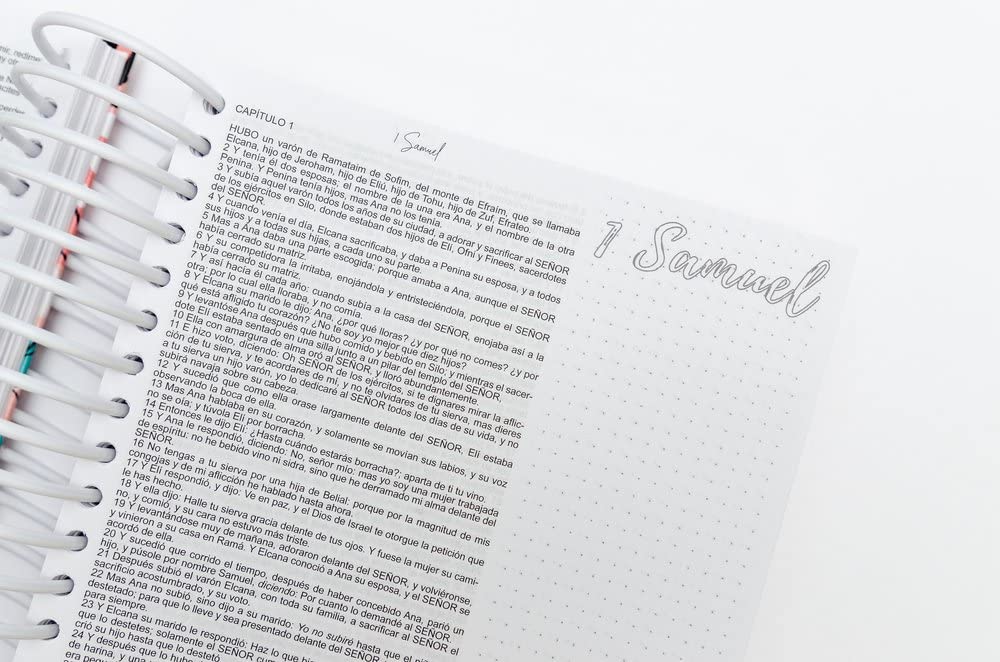 mir, redime
CAPÍTULO 1
1 Samuel
1 Samuel
HUBO un varón de Ramataim de Sofim, del monte de Efraim, que se llamaba
Elcana, hijo de Jeroham, hijo de Eliú, hijo de Tohu, hijo de Zuf, Efrateo.
2 Y tenía él dos esposas; el nombre de la una era Ana, y el nombre de la otra
Penina. Y Penina tenía hijos, mas Ana no los tenía.
3 Y subía aquel varón todos los años de su ciudad, a adorar y sacrificar al SEÑOR
de los ejércitos en Silo, donde estaban dos hijos de Elí, Ofni y Finees, sacerdotes
del SEÑOR.
4 Y cuando venía el día, Elcana sacrificaba, y daba a Penina su esposa, y a todos
sus hijos y a todas sus hijas, a cada uno su parte.
5 Mas a Ana daba una parte escogida; porque amaba a Ana, aunque el SEÑOR
había cerrado su matriz.
6 Y su competidora la irritaba, enojándola y entristeciéndola, porque el SEÑOR
había cerrado su matriz.
7 Y así hacía él cada año: cuando subía a la casa del SEÑOR, enojaba así a la
otra; por lo cual ella lloraba, y no comía.
8 Y Elcana su marido le dijo: Ana, ¿por qué lloras? ¿y por qué no comes? ¿y por
qué está afligido tu corazón? ¿No te soy yo mejor que diez hijos?
9 Y levantóse Ana después que hubo comido y bebido en Silo; y mientras el sacer-
dote Elí estaba sentado en una silla junto a un pilar del templo del SEÑOR,
10 Ella con amargura de alma oró al SEÑOR, y lloró abundantemente.
11 E hizo voto, diciendo: Oh SEÑOR de los ejércitos, si te dignares mirar la aflic-
ción de tu sierva, y te acordares de mí, y no te olvidares de tu sierva, mas dieres
a tu sierva un hijo varón, yo lo dedicaré al SEÑOR todos los días de su vida, y no
subirá navaja sobre su cabeza.
12 Y sucedió que como ella orase largamente delante del SEÑOR, Elí estaba
observando la boca de ella.
13 Mas Ana hablaba en su corazón, y solamente se movían sus labios, y su voz
no se oía; y túvola Elí por borracha.
14 Entonces le dijo Elí: ¿Hasta cuándo estarás borracha?; aparta de ti tu vino.
15 Y Ana le respondió, diciendo: No, señor mío: mas yo soy una mujer trabajada
de espíritu: no he bebido vino ni sidra, sino que he derramado mi alma delante del
SEÑOR.
16 No tengas a tu sierva por una hija de Belial; porque por la magnitud de mis
congojas y de mi aflicción he hablado hasta ahora.
17 Y Elí respondió, y dijo: Ve en paz, y el Dios de Israel te otorgue la petición que
le has hecho.
18 Y ella dijo: Halle tu sierva gracia delante de tus ojos. Y fuese la mujer su cami-
no, y comió, y su cara no estuvo más triste.
19 Y levantándose muy de mañana, adoraron delante del SEÑOR, y volviéronse,
y vinieron a su casa en Ramá. Y Elcana conoció a Ana su esposa, y el SEÑOR se
acordó de ella.
20 Y sucedió que corrido el tiempo, después de haber concebido Ana, parió un
hijo, y púsole por nombre Samuel, diciendo: Por cuanto lo demandé al SEÑOR.
21 Después subió el varón Elcana, con toda su familia, a sacrificar al SEÑOR el
sacrificio acostumbrado, y su voto.
22 Mas Ana no subió, sino dijo a su marido: Yo no subiré hasta que el
destetado; para que lo lleve y sea presentado delante del SEÑOR
para siempre.
23 Y Elcana su marido le respondió: Haz lo que bi
que lo destetes; solamente el SEÑOR cum
crió su hijo hasta que lo destetó.
24 Y después que lo hubo
de harina, y una
era pequ